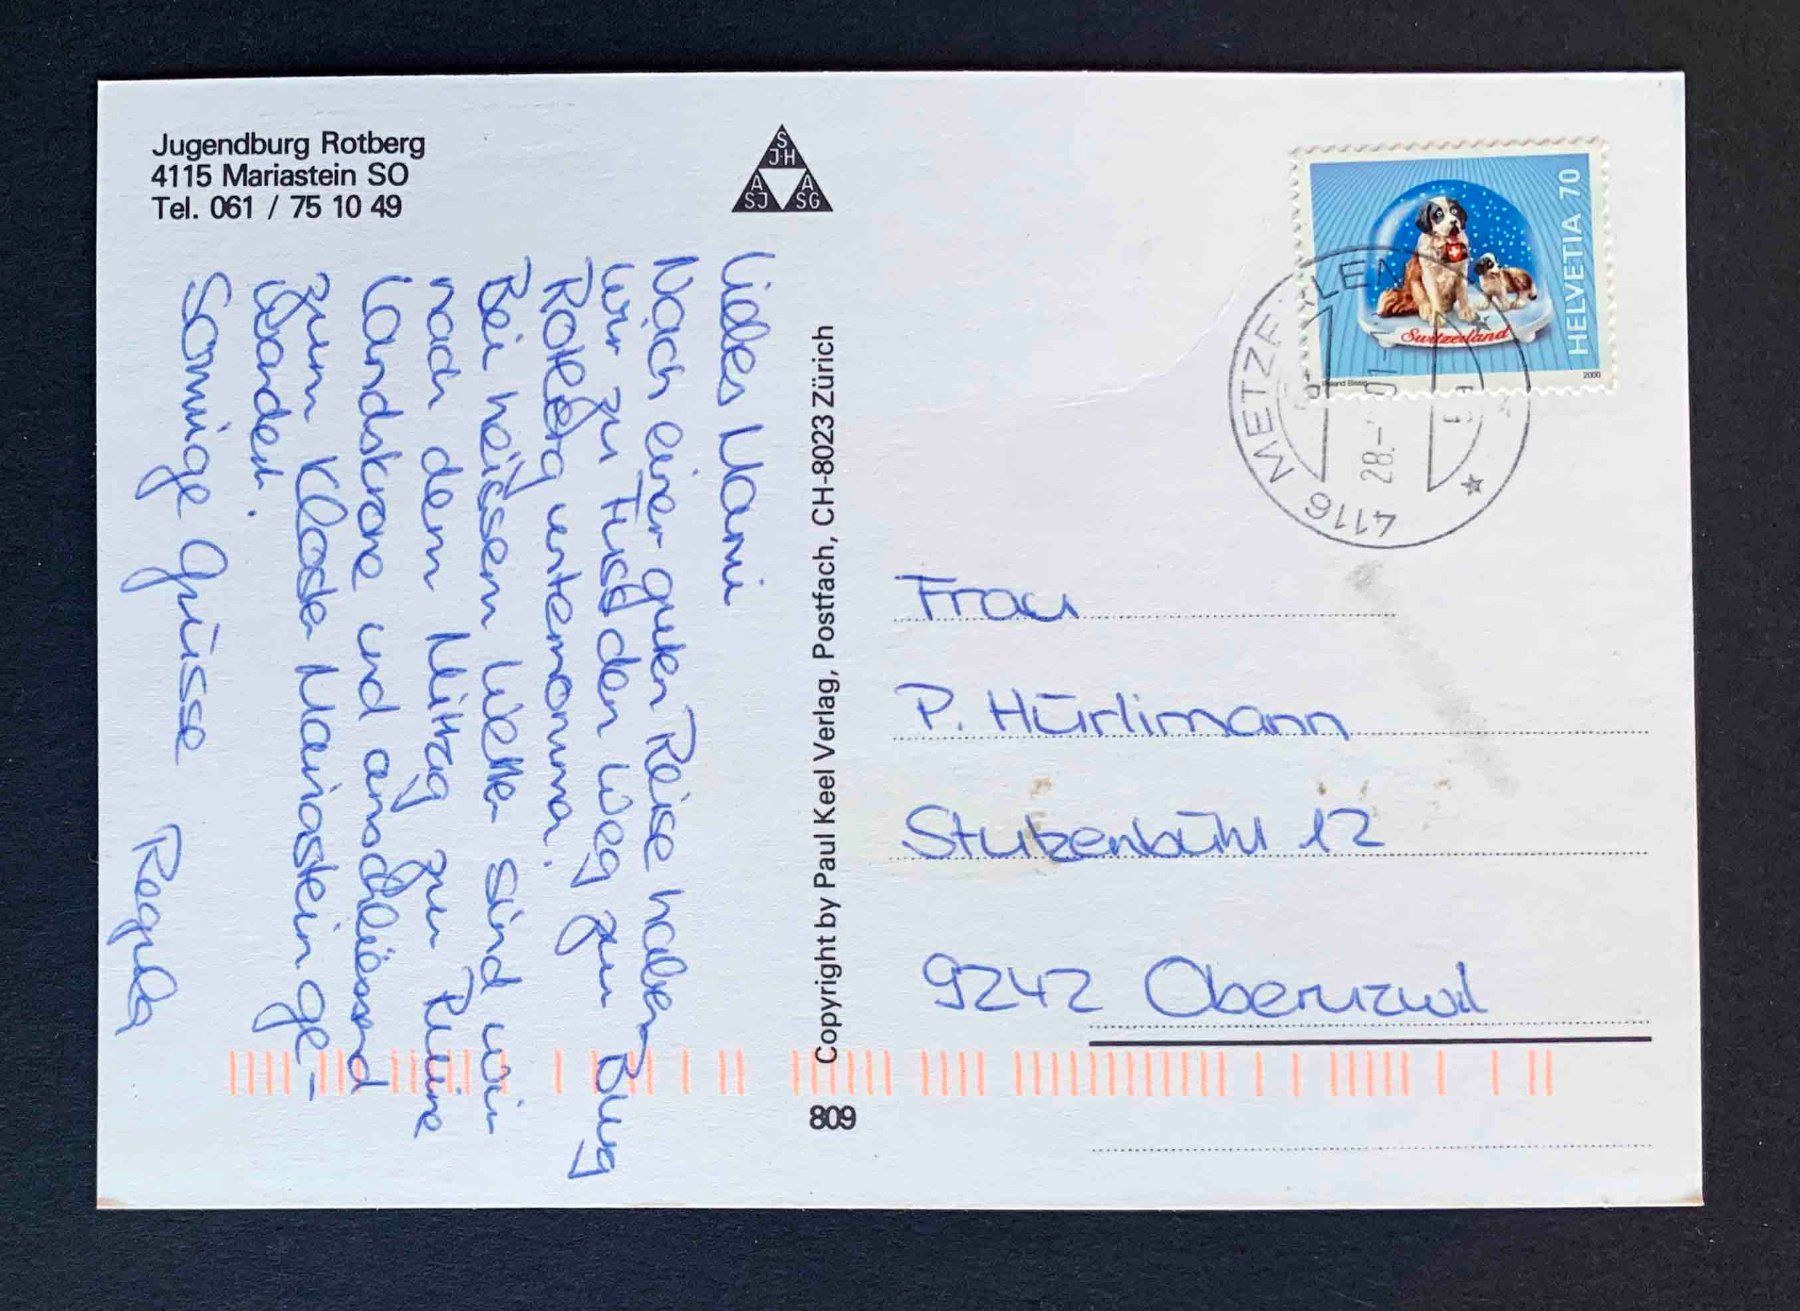 Jugendburg Rotberg
4115 Mariastein SO
Tel. 061 / 75 10 49
S
J·H
A A
SJ SG
Liebes Mami
Nach einer guten Reise haben
wir zu Fuss den Weg zur Burg
Rotberg unternomma.
Bei heissem Wetter sind wir
nach dem Mittag zur Ruine
Landskrone und anschliessend
zum Kloster Mariastein ge-
wandert.
Sonnige Grüsse
Regula
Copyright by Paul Keel Verlag, Postfach, CH-8023 Zürich
809
HELVETIA 70
Switzerland
Roland Bissig
2000
4116 METZERLEN
28.- 01-
Frau
P. Hürlimann
Stutzenbühl 12
9242 Oberuzwil